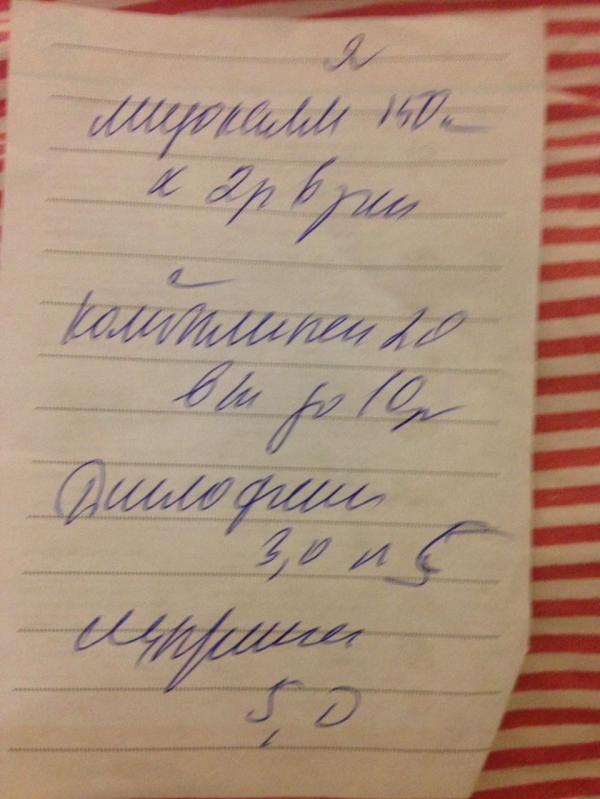 мидокалм 150
х 2р в день
комбилипен 2,0
в/м до 10
Диклофенак
3,0 n 5
5,0